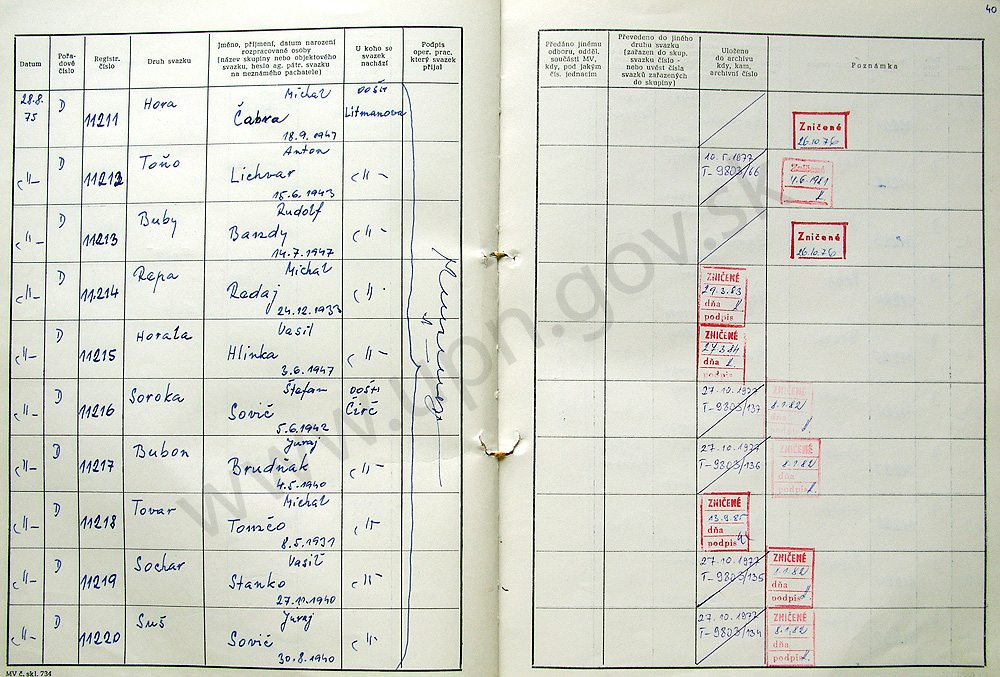 40
Datum
Pořa-
dové
číslo
Registr.
číslo
Druh svazku
Jméno, příjmení, datum narození
rozpracované osoby
(název skupiny nebo objektového
svazku, heslo ag. pátr. svazku
na neznámého pachatele)
U koho se
svazek
nachází
Podpis
oper. prac.
který svazek
přijal
Předáno jinému
odboru, odděl.
součásti MV,
kdy, pod jakým
čís. jednacím
Převedeno do jiného
druhu svazku
(zařazen do skup.
svazku číslo -
nebo uvést čísla
svazků zařazených
do skupiny)
Uloženo
do archivu
kdy, kam,
archivní číslo
Poznámka
28.8.
75
D
11211
Hora
Michal
Čabra
18.9.1947
OOŠH
Litmanova
Zničené
26.10.76
-"-
D
11212
Toňo
Anton
Lichvar
15.6.1943
-"-
10.5.1977
T-9803/66
Zničené
4.6.1981
-"-
D
11213
Buby
Rudolf
Bandy
14.7.1947
-"-
Zničené
26.10.76
-"-
D
11214
Repa
Michal
Radaj
24.12.1933
-"-
ZNIČENÉ
29.3.83
dňa
podpis
-"-
D
11215
Horala
Vasil
Hlinka
3.6.1947
-"-
ZNIČENÉ
27.3.84
dňa
podpis
-"-
D
11216
Soroka
Štefan
Sovič
5.6.1942
OOŠH
Čirč
27.10.1977
T-9803/137
ZNIČENÉ
8.1.82
-"-
D
11217
Bubon
Juraj
Brudňak
4.5.1940
-"-
27.10.1977
T-9803/136
ZNIČENÉ
8.1.82
dňa
podpis
-"-
D
11218
Tovar
Michal
Tomčo
8.5.1931
-"-
ZNIČENÉ
13.9.85
dňa
podpis
-"-
D
11219
Sochar
Vasil
Stanko
27.10.1940
-"-
27.10.1977
T-9803/135
ZNIČENÉ
8.1.82
dňa
podpis
-"-
D
11220
Suš
Juraj
Sovič
30.8.1940
-"-
27.10.1977
T-9803/134
ZNIČENÉ
8.1.82
dňa
podpis
MV č. skl. 734
www.upn.gov.sk